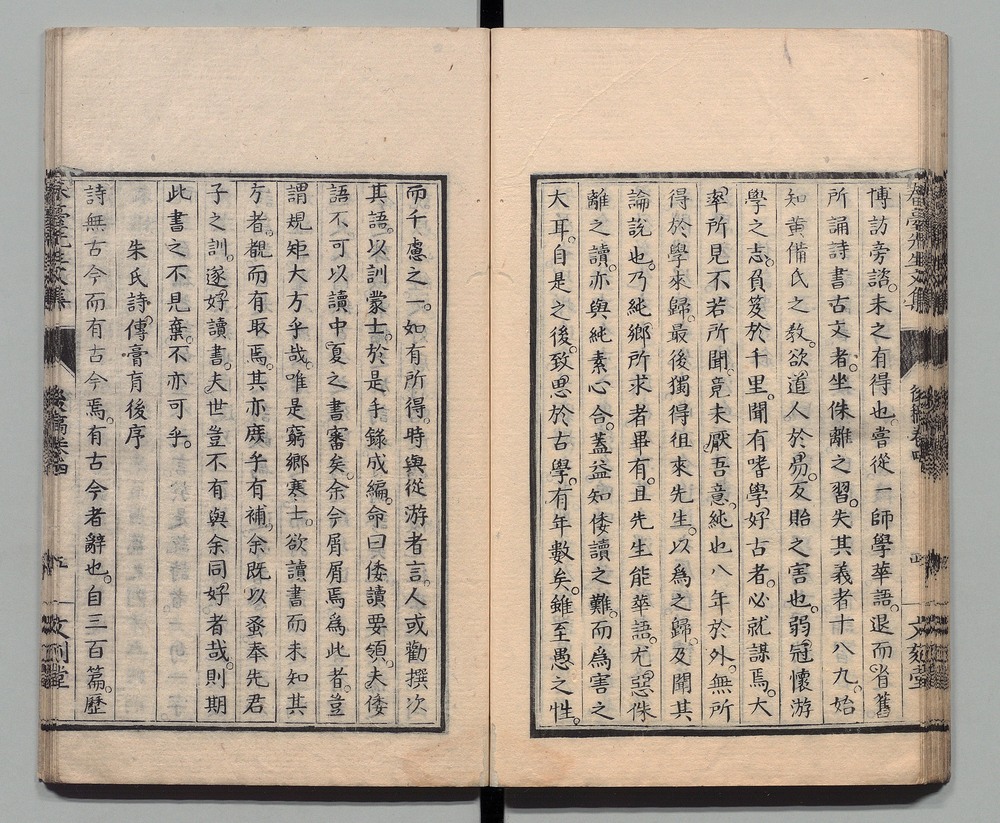 博訪旁諮。未之有得也。嘗從一師學華語。退而省舊
所誦詩書古文者。坐侏離之習。失其義者十八九。始
知黃備氏之敎。欲道人於易。反貽之害也。弱冠懷游
學之志。負笈於千里。聞有嗜學好古者。必就謀焉。大
率所見不若所聞。竟未厭吾意。純也八年於外。無所
得於學來歸。最後獨得徂來先生。以爲之歸。及聞其
論說也。乃純鄉所求者畢有。且先生能華語。尤惡侏
離之讀。亦與純素心合。蓋益知倭讀之難。而爲害之
大耳。自是之後。致思於古學。有年數矣。雖至愚之性。
而千慮之一。如有所得。時與從游者言。人或勸撰次
其語。以訓蒙士。於是手錄成編。命曰倭讀要領。夫倭
語不可以讀中夏之書審矣。余今屑屑焉爲此者。豈
謂規矩大方乎哉。唯是窮鄉寒士。欲讀書而未知其
方者。覩而有取焉。其亦庶乎有補。余既以蚤奉先君
子之訓。遂好讀書。夫世豈不有與余同好者哉。則期
此書之不見棄。不亦可乎。
朱氏詩傳膏肓後序
詩無古今而有古今焉。有古今者辭也。自三百篇。歷
春臺先生文集
後稿卷四